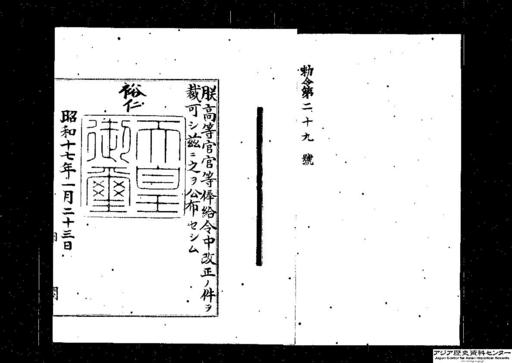 勅令第二十九號
朕高等官官等俸給令中改正ノ件ヲ
裁可シ茲ニ之ヲ公布セシム
裕仁
天皇御璽
昭和十七年一月二十三日
アジア歴史資料センター
Japan Center for Asian Historical Records